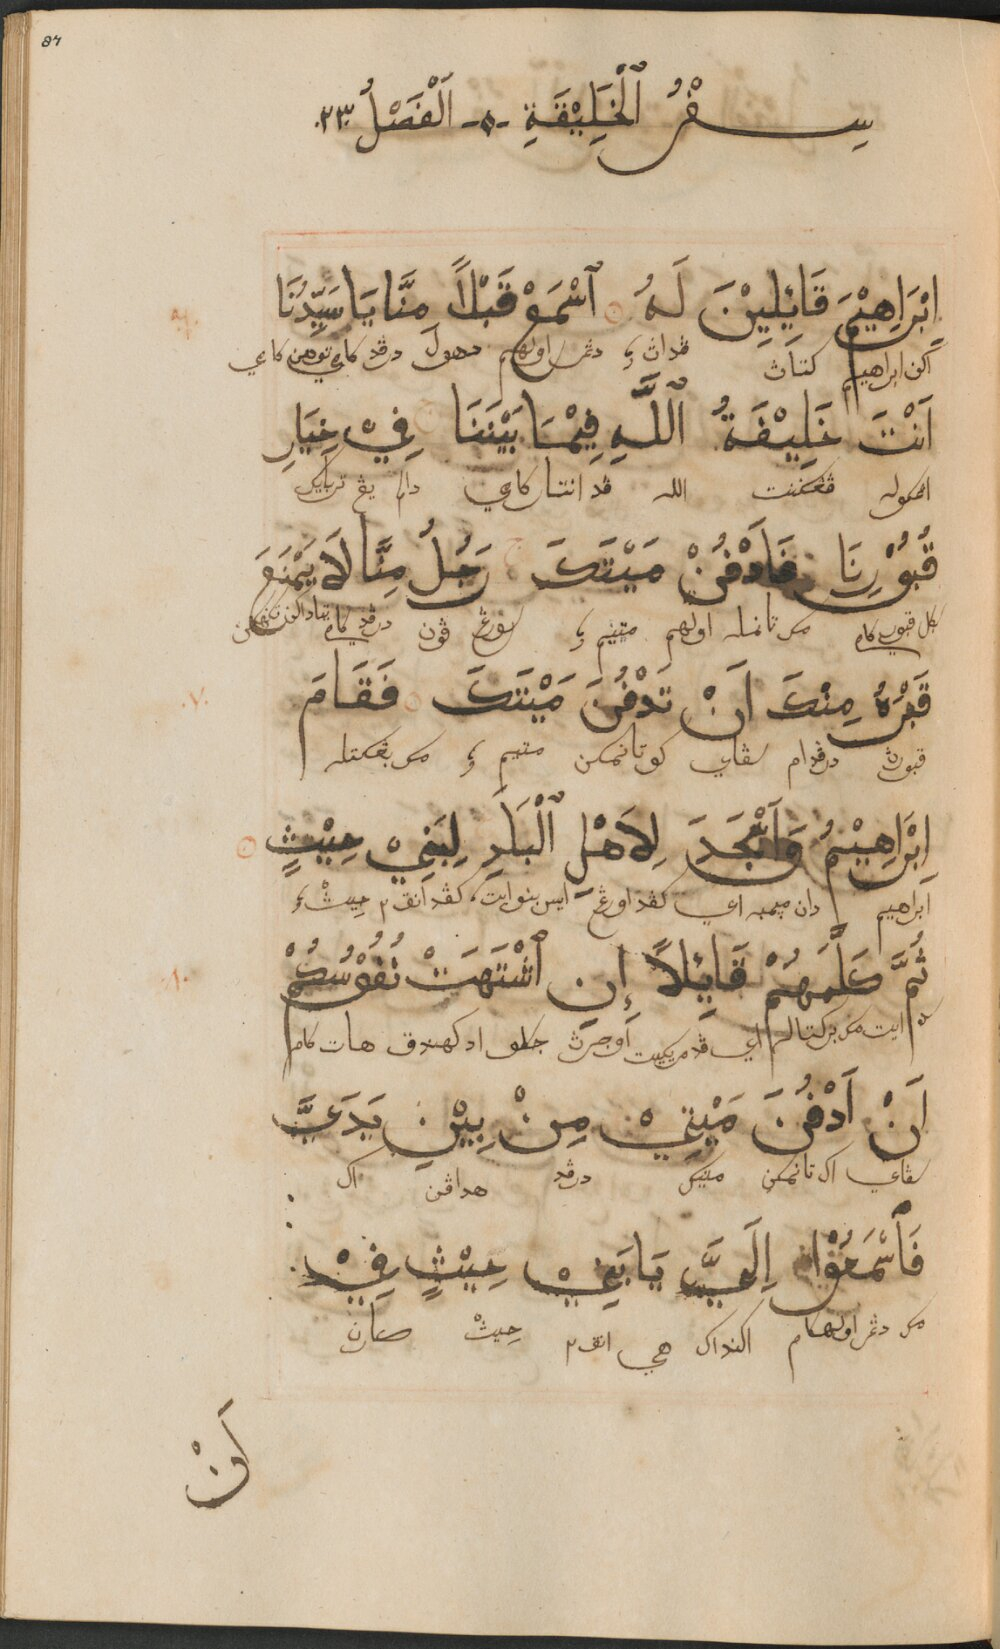 87
سِفْرُ ٱلْخَلِيْقَةِ -٥- اَلْفَصْلُ ٢٣.
اِبْرَاهِيْمَ قَائِلِيْنَ لَهُ ٱسْمَعْ قَبْلاً مِنَّا يَا سَيِّدُنَا
اكن ابراهيم كتاث ڤداث ء دڠر اولهم دهول درڤد كامي توهن كامي
اَنْتَ خَلِيْفَةُ ٱللّٰهِ فِيْمَا بَيْنَنَا فِيْ خِيَارِ
اڠكوله ڤڠگنت الله ڤد انتار كامي دالم يڠ تربايك
قُبُوْرِنَا فَاَدْفُنْ مَيْتَكَ رَجُلُ مِنَّا لَا يَمْنَعَ
قبور كام مك تانمله اولهم ميتم ء سورڠ ڤون درڤد كامي تياد اكن
قَبْرَهُ مِنْكَ اَنْ تَدْفُنَ مَيْتَكَ فَقَامَ
قبورڽ درڤدام سڤاي كو تانمكن ميتم ء مك بڠكتله
.٧.
اِبْرَاهِيْمُ وَاَنْجَدَ لِاَهْلِ ٱلْبَلَدِ لِبَنِيْ حِيْثٍ
ابراهيم دان ميمبه اي كڤد اورڠ ايسي بنو ايت كڤد انق٢ حيث ء
ثُمَّ كَلَّمَهُمْ قَائِلاً اِنِ ٱشْتَهَتْ نُفُوْسُكُمْ
ايت مك بركتاله اي ڤد مريكيت اوجرڽ جكلو اد كهندق هات كام
.٨.
اَنْ اَدْفُنَ مَيْتِيْ مِنْ بِيْنِ يَدَيَّ
سڤاي اك تانمكن ميتك درڤد هداڤن اك
فَاَسْمَعُوْا اِلَيَّ يَا بَنِيْ حِيْثٍ فِيْ
مك دڠر اولهكام اكنداك هي انق٢ حيث
اَنْ